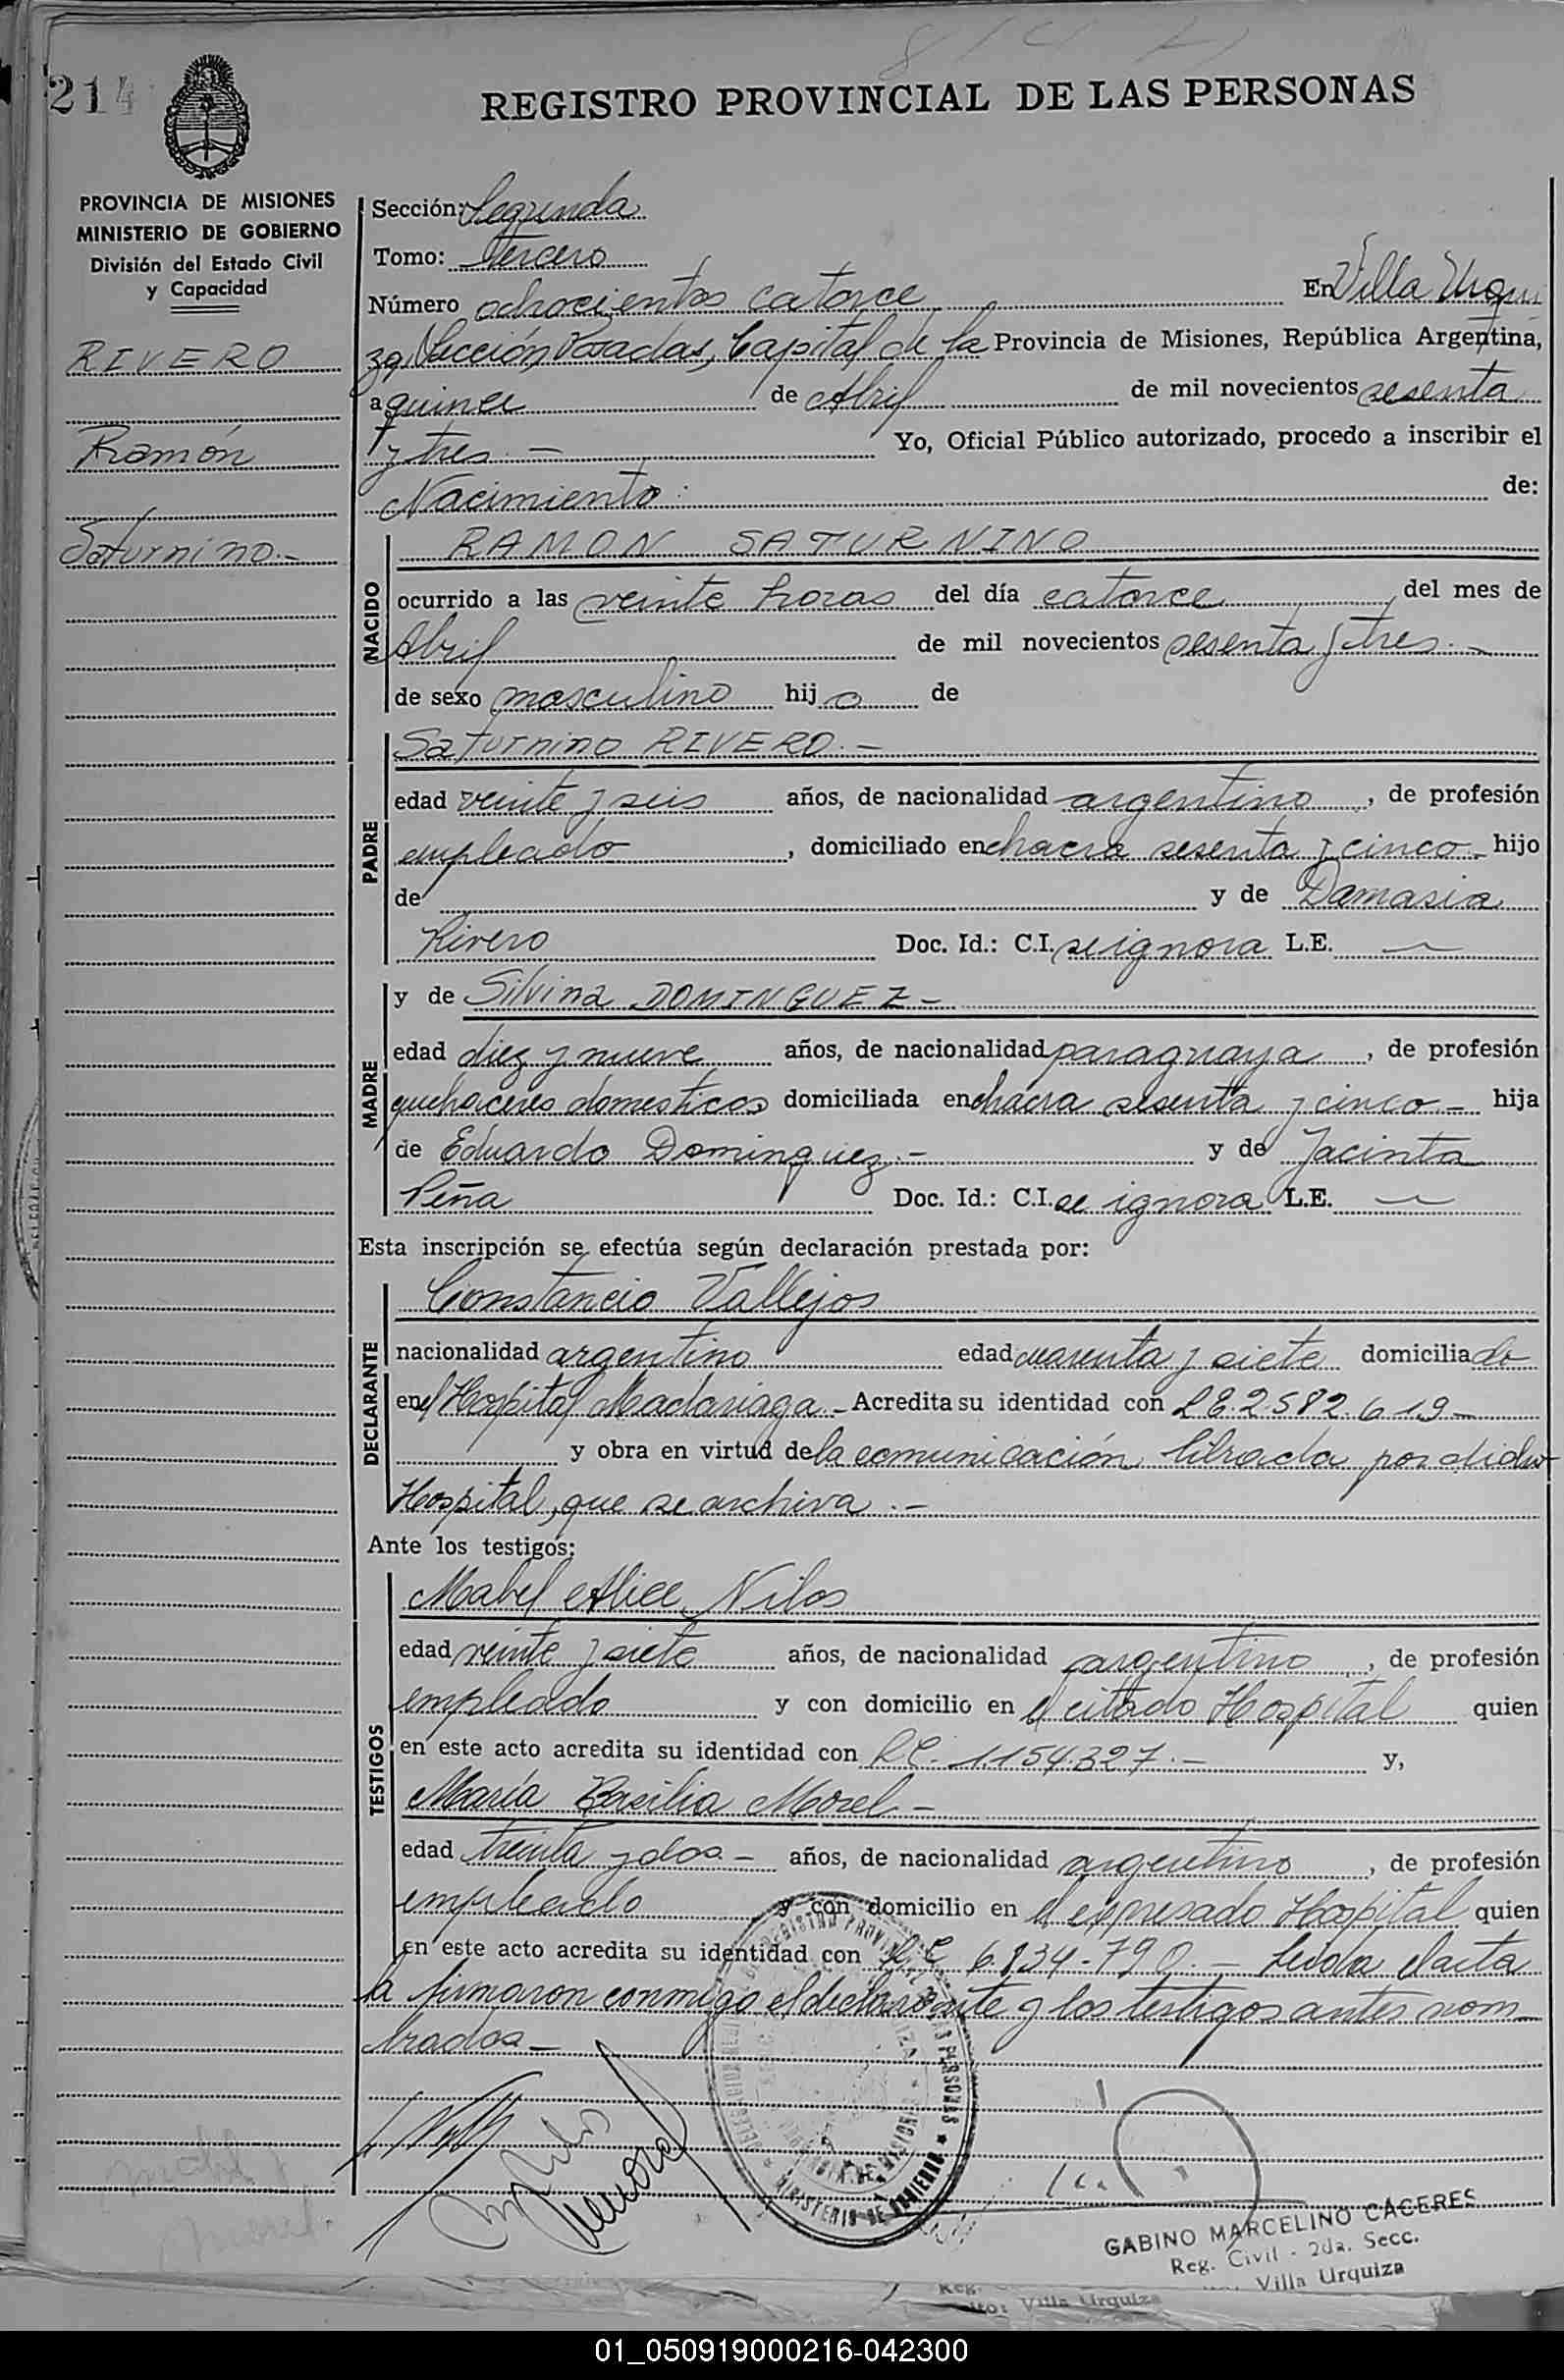 214
REGISTRO PROVINCIAL DE LAS PERSONAS
PROVINCIA DE MISIONES
MINISTERIO DE GOBIERNO
División del Estado Civil
y Capacidad
RIVERO
Ramón
Saturnino.-
Sección: Segunda
Tomo: Tercero
Número ochocientos catorce En Villa Urqui
za, Sección Posadas, Capital de la Provincia de Misiones, República Argentina,
a quince de Abril de mil novecientos sesenta
y tres.- Yo, Oficial Público autorizado, procedo a inscribir el
Nacimiento: de:
NACIDO
RAMON SATURNINO
ocurrido a las veinte horas del día catorce del mes de
Abril de mil novecientos sesenta y tres.-
de sexo masculino hijo de
PADRE
Saturnino RIVERO.-
edad veinte y seis años, de nacionalidad argentino, de profesión
empleado, domiciliado en chacra sesenta y cinco- hijo
de y de Damasia
Rivero Doc. Id.: C.I. se ignora L.E. —
MADRE
y de Silvina DOMINGUEZ-
edad diez y nueve años, de nacionalidad paraguaya, de profesión
quehaceres domesticos domiciliada en chacra sesenta y cinco.- hija
de Eduardo Dominguez.- y de Jacinta
Peña Doc. Id.: C.I. se ignora L.E. —
Esta inscripción se efectúa según declaración prestada por:
DECLARANTE
Constancio Vallejos
nacionalidad argentino edad cuarenta y siete domiciliado
en el Hospital Madariaga- Acredita su identidad con LE 2.582.619-
y obra en virtud de la comunicación librada por dicho
Hospital, que se archiva.-
Ante los testigos:
TESTIGOS
Mabel Alice Nilos
edad veinte y siete años, de nacionalidad argentino, de profesión
empleado y con domicilio en el citado Hospital quien
en este acto acredita su identidad con LC. 1.154.327.- y,
María Basilia Morel-
edad treinta y dos- años, de nacionalidad argentino, de profesión
empleado y con domicilio en el expresado Hospital quien
en este acto acredita su identidad con LC 6.834.790.- Leida el acta
la firmaron conmigo el declarante y los testigos antes nom
brados-
GABINO MARCELINO CACERES
Reg. Civil - 2da. Secc.
Villa Urquiza
Villa Urquiza
01_050919000216-042300